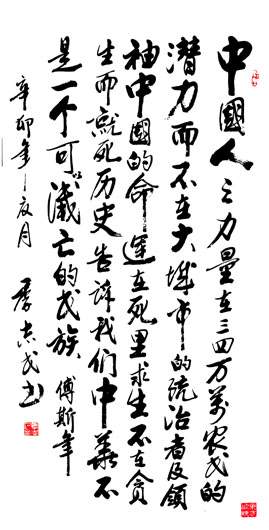 中國人之力量在三四万萬农民的
潜力而不在大城市的统治者及领
袖中國的命運在死里求生不在贪
生而就死历史告诉我们中華不
是一个可以滅亡的民族 傅斯年
辛卯年之夏月
书